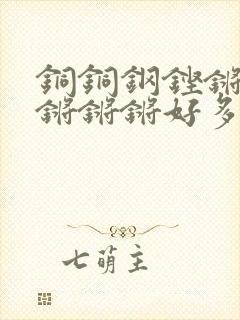 銅銅鋼鏗鏘
鏘鏘鏘好多
七萌主